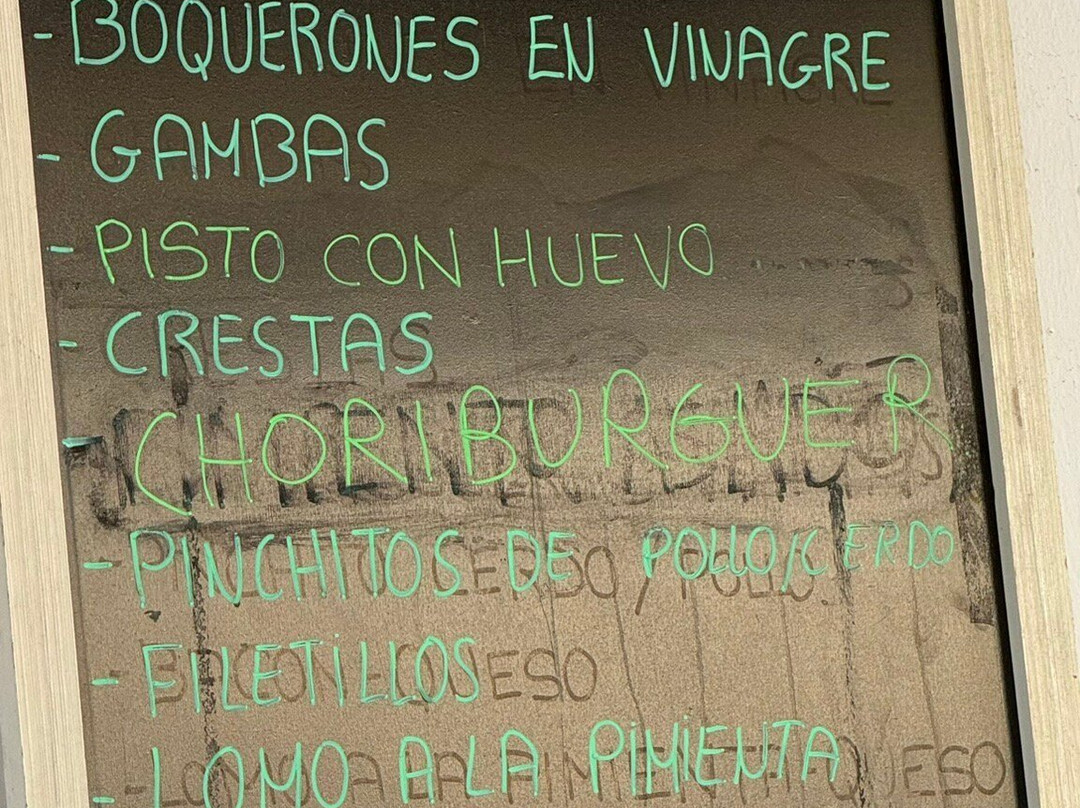 - BOQUERONES EN VINAGRE
- GAMBAS
- PISTO CON HUEVO
- CRESTAS
- CHORIBURGUER
- PINCHITOS DE POLLO/CERDO
- FILETILLOS
- LOMO A LA PIMIENTA